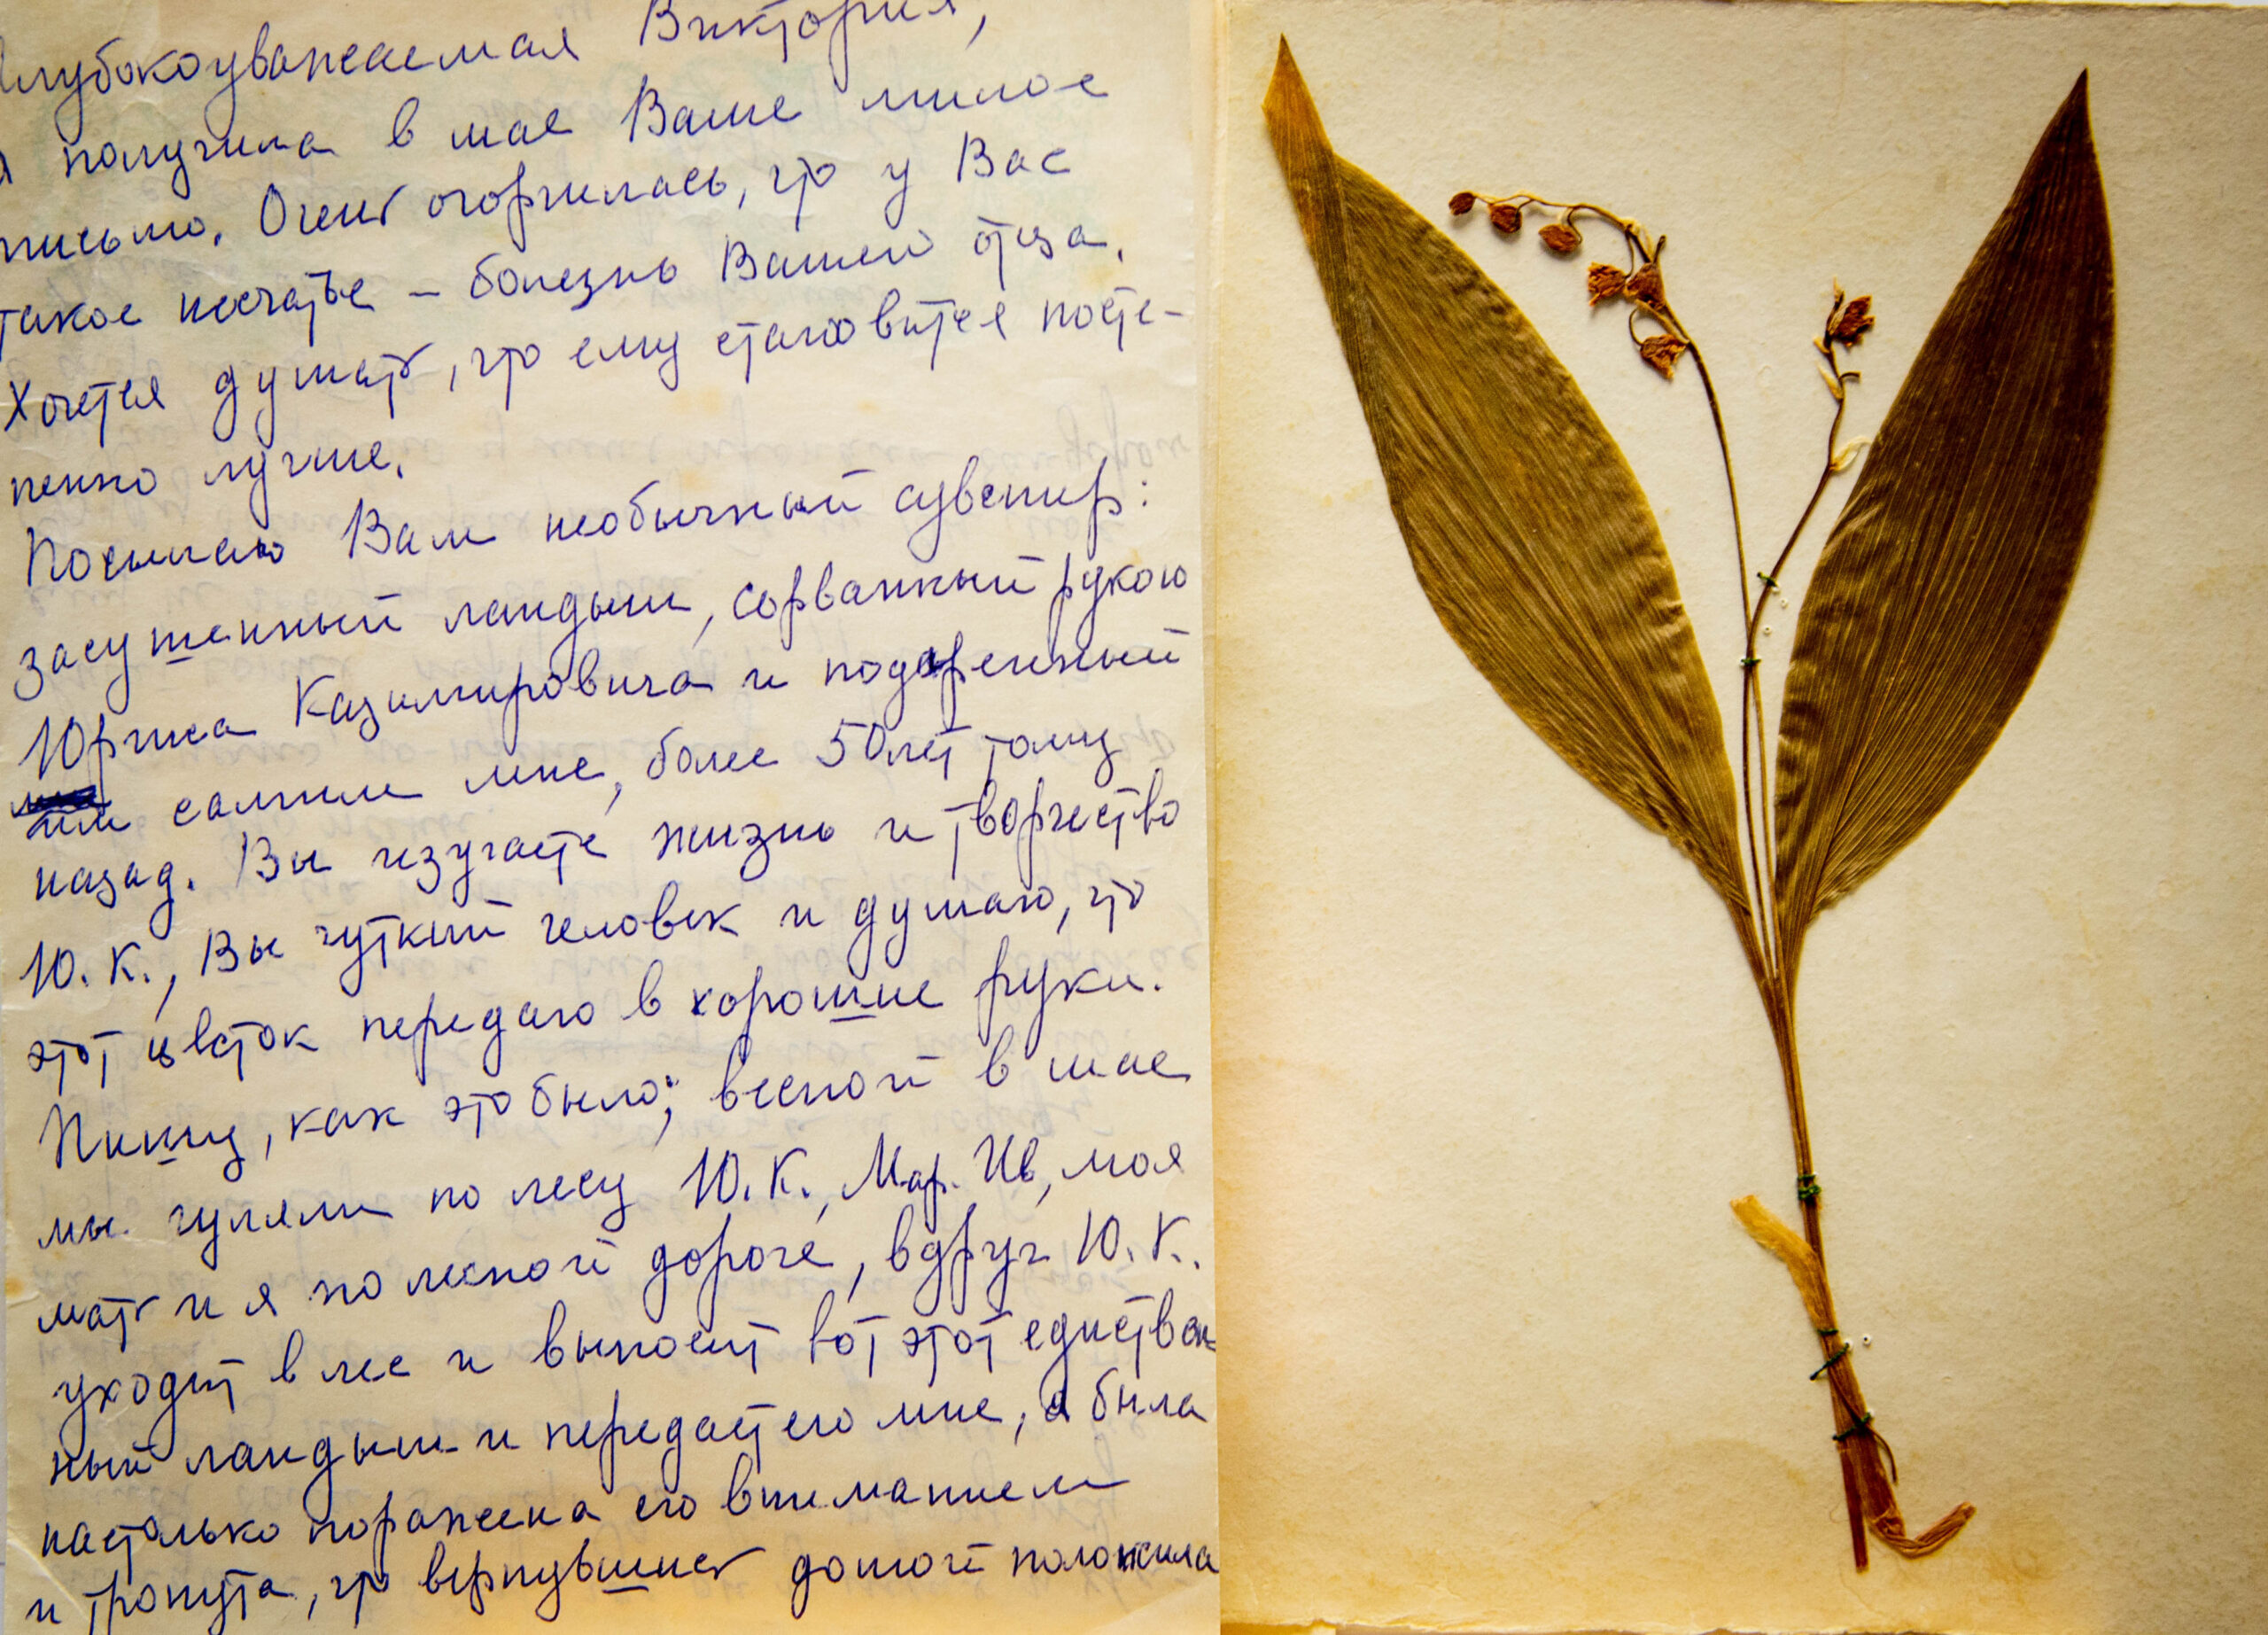 Глубокоуважаемая Виктория,
я получила в мае Ваше милое
письмо. Очень огорчилась, что у Вас
такое несчастье – болезнь Вашего отца.
Хочется думать, что ему становится посте-
пенно лучше.
Посылаю Вам необычный сувенир:
засушенный ландыш, сорванный рукою
Юргиса Казимировича и подаренный
им самим мне, более 50 лет тому
назад. Вы изучаете жизнь и творчество
Ю. К., Вы чуткий человек и думаю, что
этот цветок передаю в хорошие руки.
Пишу, как это было; весной в мае
мы гуляли по лесу Ю. К., Мар. Ив, моя
мать и я по лесной дороге, вдруг Ю. К.
уходит в лес и выносит вот этот единствен
ный ландыш и передает его мне, я была
настолько поражена его вниманием
и тронута, что вернувшись домой положила